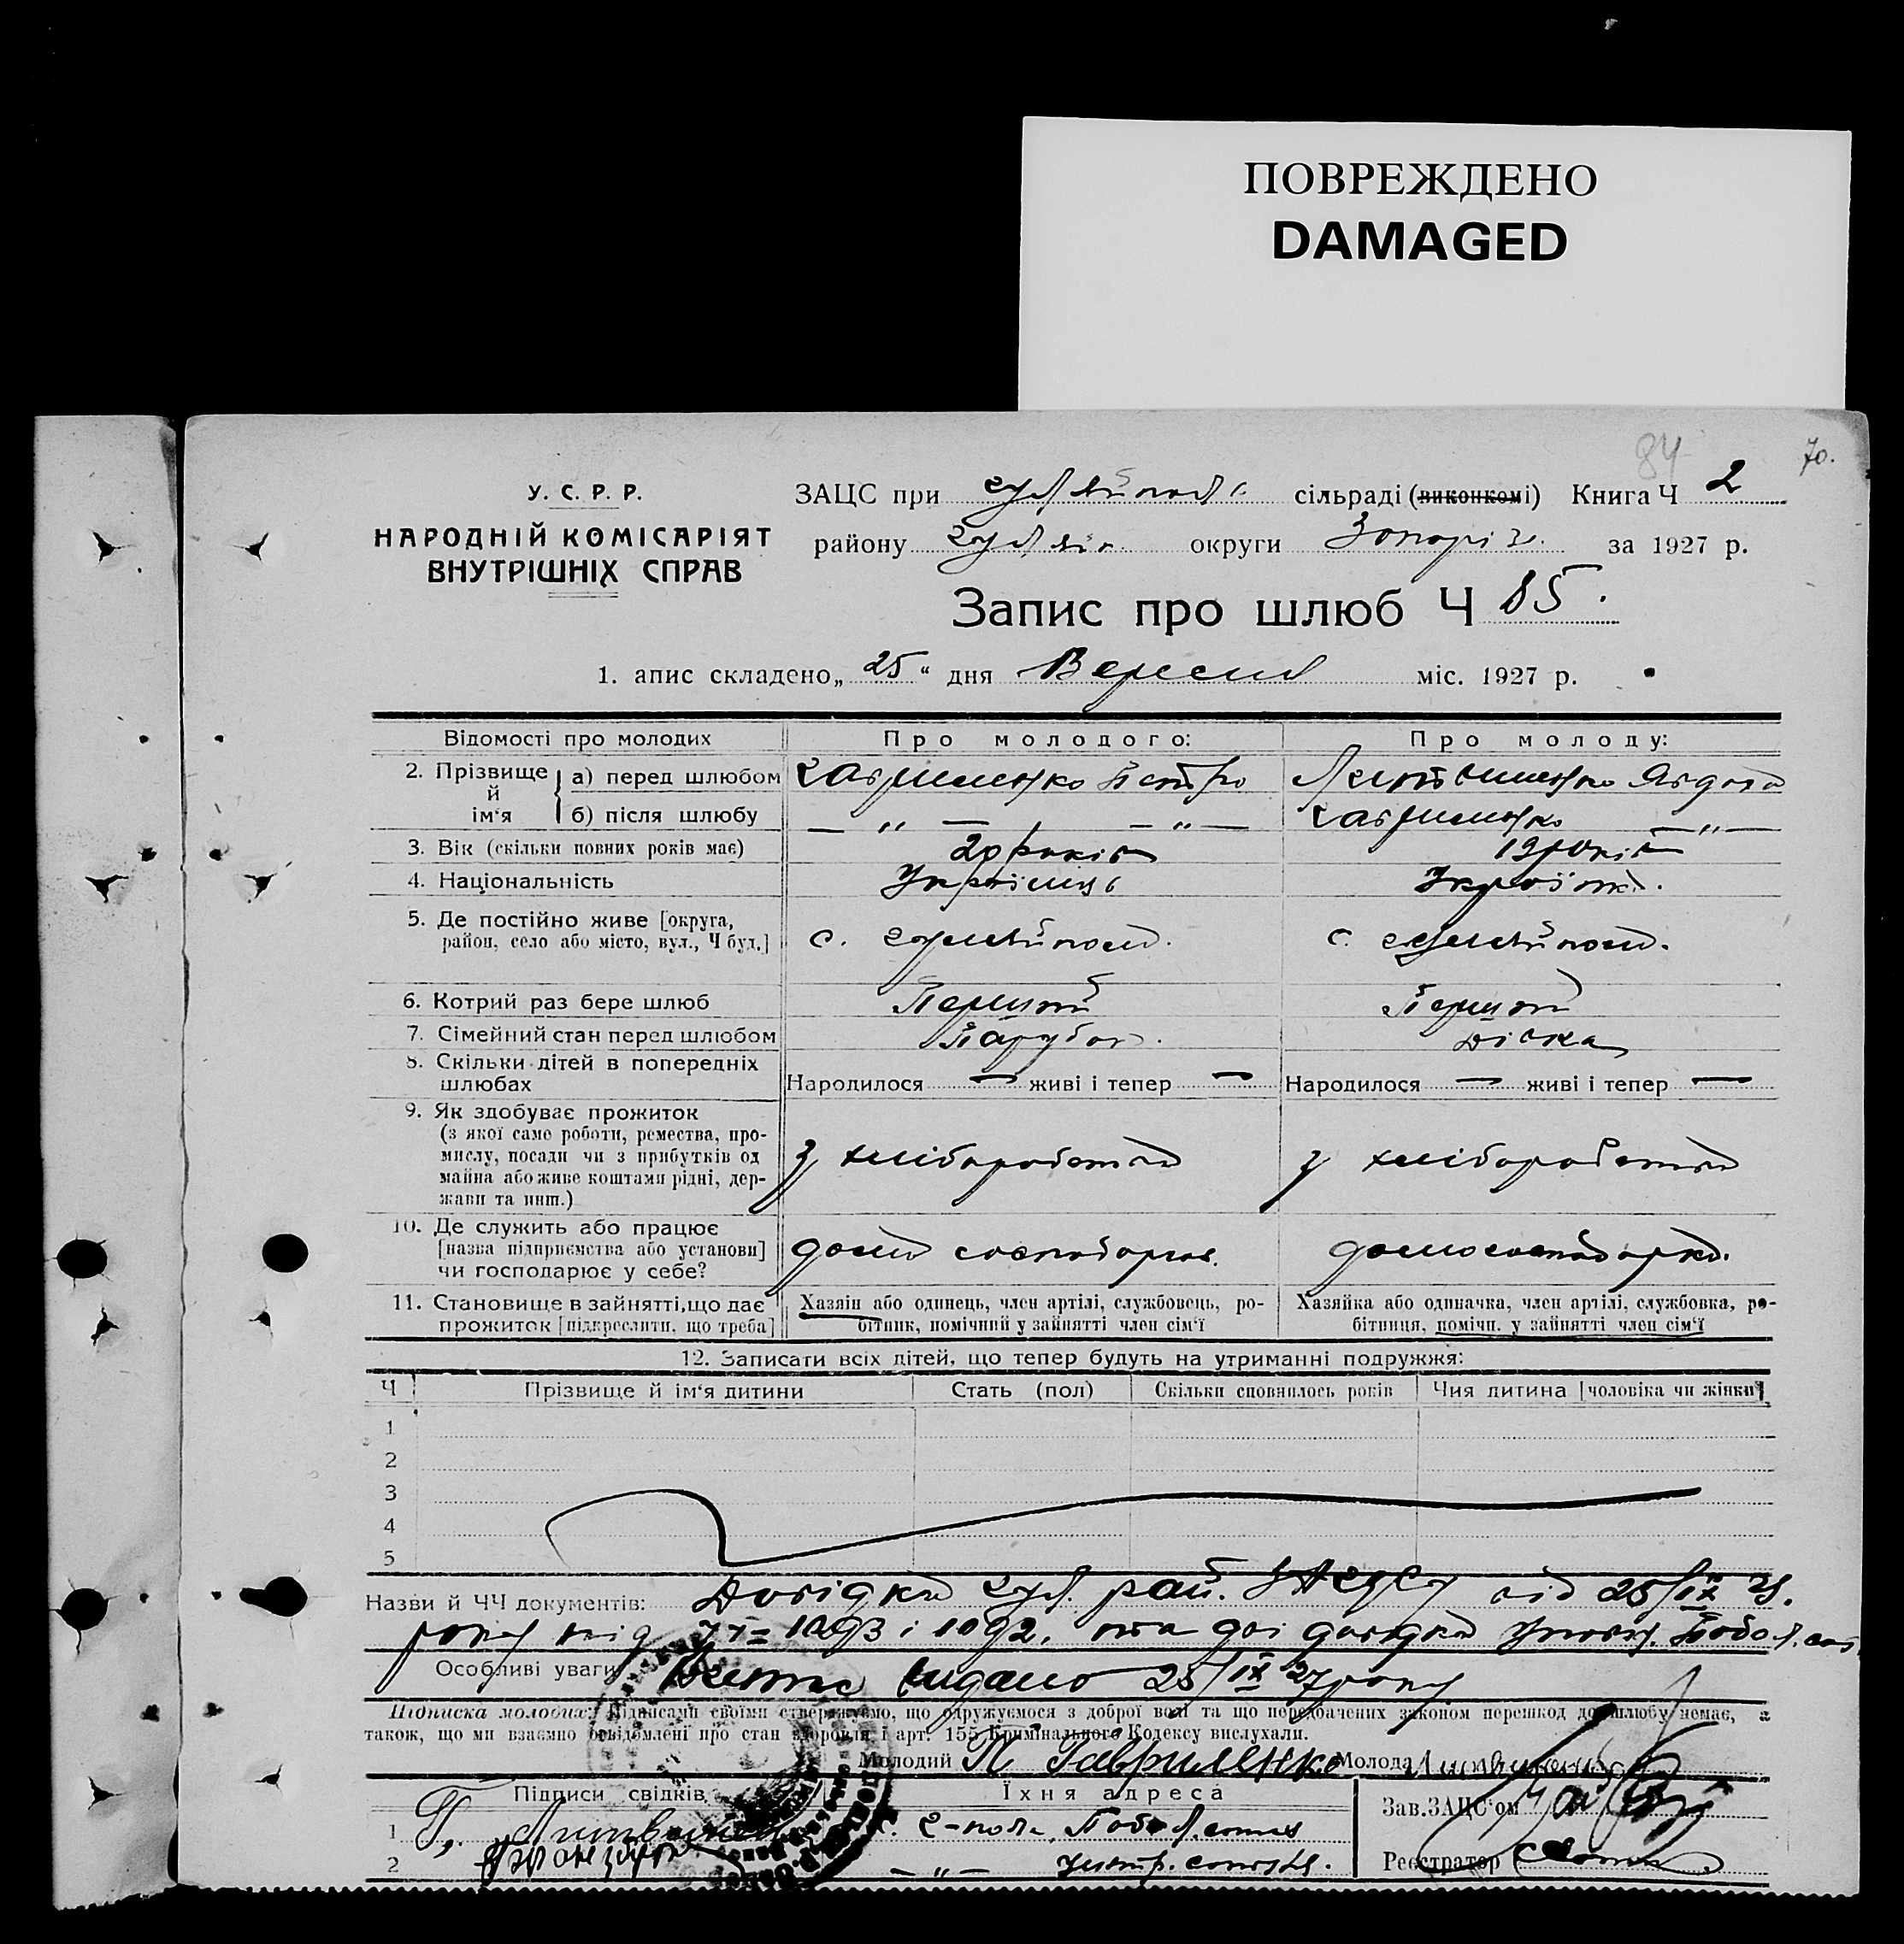 ПОВРЕЖДЕНО
DAMAGED
84 70.
У. С. Р. Р.
НАРОДНІЙ КОМІСАРІЯТ
ВНУТРІШНІХ СПРАВ
ЗАЦС при сільраді (виконкомі) Книга Ч 2
району округи Запоріз. за 1927 р.
Запис про шлюб Ч 85.
1. апис складено „ 25 “ дня Вересня міс. 1927 р.
Відомості про молодих Про молодого: Про молоду:
2. Прізвище й ім‘я а) перед шлюбом Гавриленко Петро Литвиненко Явдоха
б) після шлюбу — „ — — „ — Гавриленко — „ —
3. Вік (скільки повних років має) 20 років 19 років
4. Національність Українець Українка.
5. Де постійно живе [округа,
район, село або місто, вул., Ч буд.] с. Гуляйполе. с. Гуляйполе.
6. Котрий раз бере шлюб Перший Перший
7. Сімейний стан перед шлюбом Парубок. Дівка
8. Скільки дітей в попередніх
шлюбах Народилося — живі і тепер — Народилося — живі і тепер —
9. Як здобуває прожиток
(з якої саме роботи, ремества, про-
мислу, посади чи з прибутків од
майна або живе коштами рідні, дер-
жави та инш.)
з хліборобства з хліборобства
10. Де служить або працює
[назва підприємства або установи]
чи господарює у себе?
дома господарює. домогосподарка.
11. Становище в зайнятті, що дає
прожиток [підкреслити, що треба]
Хазяїн або одинець, член артілі, службовець, ро-
бітник, помічний у зайнятті член сім‘ї
Хазяйка або одиначка, член артілі, службовка, ро-
бітниця, помічн. у зайнятті член сім‘ї
12. Записати всіх дітей, що тепер будуть на утриманні подружжя:
Ч Прізвище й ім‘я дитини Стать (пол) Скільки сповнилось років Чия дитина [чоловіка чи жінки]
1
2
3
4
5
Назви й ЧЧ документів: Довідка Гул. рай. ЗАГСу від 25/IX
року 1093 і 1092, та дві довідки
Особливі уваги Витяг видано 25/IX 27 року
Підписка молодих: Підписами своїми стверджуємо, що одружуємося з доброї волі та що передбачених законом перешкод до шлюбу немає, а
також, що ми взаємно освідомлені про стан здоровля і арт. 155 Кримінального Кодексу вислухали.
Молодий П Гавриленко Молода
Підписи свідків Їхня адреса Зав. ЗАЦС‘ом
1 Г. Литвинен
2 — „ — Центр. сотня. Реєстратор